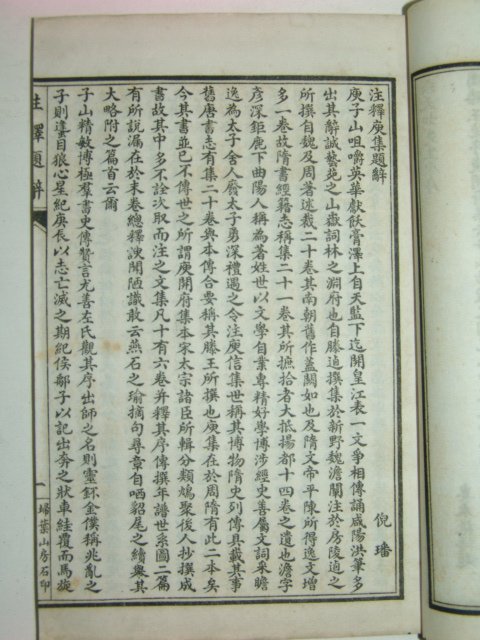 注釋庾集題辭
倪璠
庾子山咀嚼英華猒飫膏澤上自天監下迄開皇江表一文爭相傳誦咸陽洪筆多
出其辭誠藝苑之山嶽詞林之淵府也自滕逌撰集於新野魏澹闡注於房陵逌之
所撰自魏及周著述裁二十卷其南朝舊作蓋闕如也及隋文帝平陳所得逸文增
多一卷故隋書經籍志稱集二十一卷其所摭拾者大抵揚都十四卷之遺也澹字
彥深鉅鹿下曲陽人稱為著姓世以文學自業專精好學博涉經史善屬文詞采贍
逸為太子舍人廢太子勇深禮遇之令注庾信集世稱其博物隋史列傳具載其事
舊唐書志有集二十卷與本傳合要稱其滕王所撰也庾集在於周隋有此二本矣
今其書並已不傳世之所謂庾開府集本宋太宗諸臣所輯分類鳩聚後人抄撰成
書故其中多不詮次取而注之文集凡十有六卷并釋其序傳撰年譜世系圖二篇
有所說漏在於末卷總釋諛聞陋識敢云燕石之瑜摘句尋章自哂貂尾之續舉其
大略附之篇首云爾
子山精敏博極羣書史傳贊言尤善左氏觀其序出師之名則靈鉟金僕稱兆亂之
子則蠭目狼心星紀庚辰以志亡滅之期紀侯鄅子以記出奔之狀車絓覆而馬旋
注釋題辭
一
埽葉山房石印